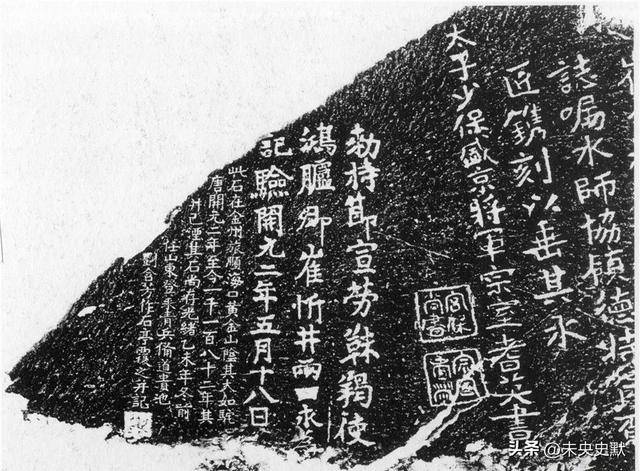 誌囑水師協領德特賀
匠鐫刻以垂其永
太子少保盛京將軍宗室耆英書
宮保尚書
勅持節宣勞靺羯使
鴻臚卿崔忻井兩口永為
記驗開元二年五月十八日
此石在金州旅順海口黃金山陰其大如駝
唐開元二年至今一千一百八十二年其
井已湮其石尚存光緒乙未年冬前
任山東登萊青兵備道貴池
劉含芳作石亭覆之并記
头条 @未央史默